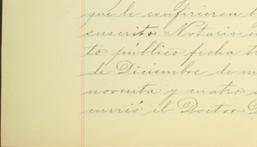 que le confirieron
suscrito Notario
to público fecha
de Diciembre de
noventa y cuatro
currió el Doctor